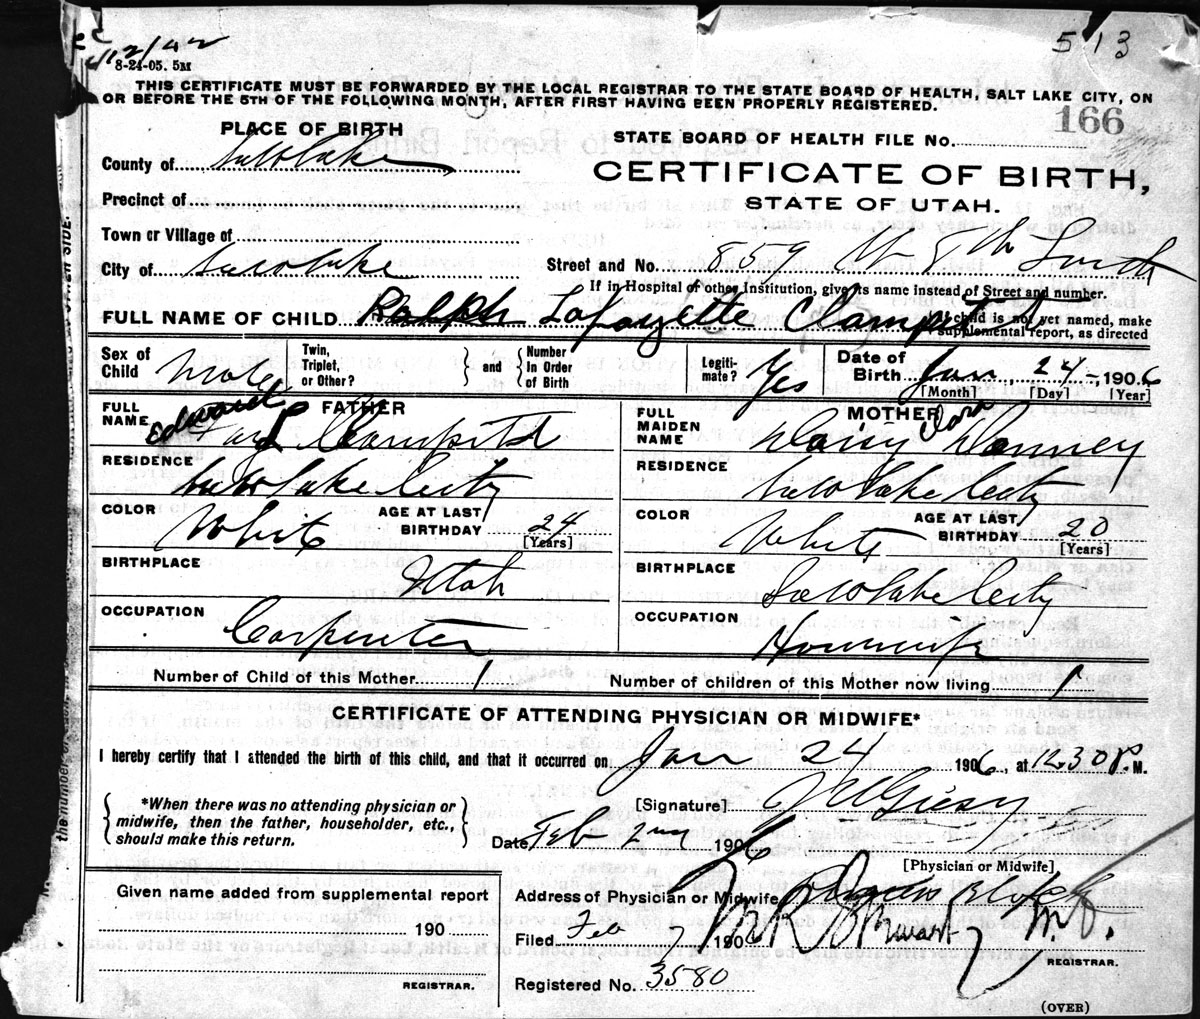 513
4/12/42
8-24-05. 5M
THIS CERTIFICATE MUST BE FORWARDED BY THE LOCAL REGISTRAR TO THE STATE BOARD OF HEALTH, SALT LAKE CITY, ON
OR BEFORE THE 5TH OF THE FOLLOWING MONTH, AFTER FIRST HAVING BEEN PROPERLY REGISTERED.
166
PLACE OF BIRTH
STATE BOARD OF HEALTH FILE No.
County of Salt Lake
CERTIFICATE OF BIRTH,
STATE OF UTAH.
Precinct of
Town or Village of
City of Salt Lake Street and No. 859 W 8th South
If in Hospital or other Institution, give its name instead of Street and number.
FULL NAME OF CHILD Ralph Lafayette Clampitt
If child is not yet named, make
supplemental report, as directed
Sex of Child Male
Twin, Triplet, or Other?
and
Number In Order of Birth
Legitimate? Yes
Date of Birth Jan. 24 1906
[Month] [Day] [Year]
FATHER
FULL NAME Edward Clampitt
RESIDENCE Salt Lake City
COLOR White
AGE AT LAST BIRTHDAY 24
[Years]
BIRTHPLACE Utah
OCCUPATION Carpenter
MOTHER
FULL MAIDEN NAME Daisy Dora
RESIDENCE Salt Lake City
COLOR White
AGE AT LAST BIRTHDAY 20
[Years]
BIRTHPLACE Salt Lake City
OCCUPATION Housewife
Number of Child of this Mother 1 Number of children of this Mother now living 1
CERTIFICATE OF ATTENDING PHYSICIAN OR MIDWIFE*
I hereby certify that I attended the birth of this child, and that it occurred on Jan 24 1906, at 12.30 P. M.
*When there was no attending physician or
midwife, then the father, householder, etc.,
should make this return.
[Signature]
Date Feb 2nd 1906
[Physician or Midwife]
Given name added from supplemental report
190
REGISTRAR.
Address of Physician or Midwife
Filed Feb 7 1906 M.D.
REGISTRAR.
Registered No. 3580
(OVER)